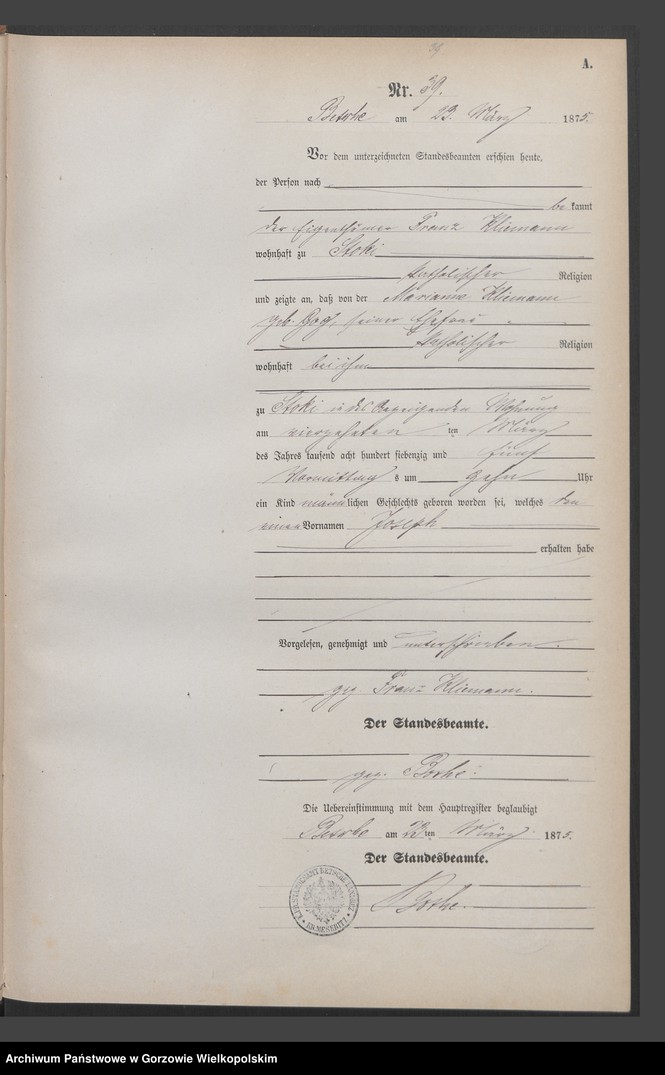 39
A.
Nr. 39.
Betsche am 23. März 1875.
Vor dem unterzeichneten Standesbeamten erschien heute,
der Person nach
be kannt
der Eigenthümer Franz Kliemann
wohnhaft zu Stoki
katholischer Religion
und zeigte an, daß von der Marianna Kliemann
geb. seiner Ehefrau
katholischer Religion
wohnhaft bei ihm
zu Stoki in des Wohnung
am vierzehnten ten März
des Jahres tausend acht hundert siebenzig und fünf
Vormittag s um zehn Uhr
ein Kind männlichen Geschlechts geboren worden sei, welches den
einen Vornamen Joseph
erhalten habe
Vorgelesen, genehmigt und unterschrieben.
gez. Franz Kliemann.
Der Standesbeamte.
gez. Bothe.
Die Uebereinstimmung mit dem Hauptregister beglaubigt
Betsche am 23 ten März 1875.
Der Standesbeamte.
Bothe.
Archiwum Państwowe w Gorzowie Wielkopolskim